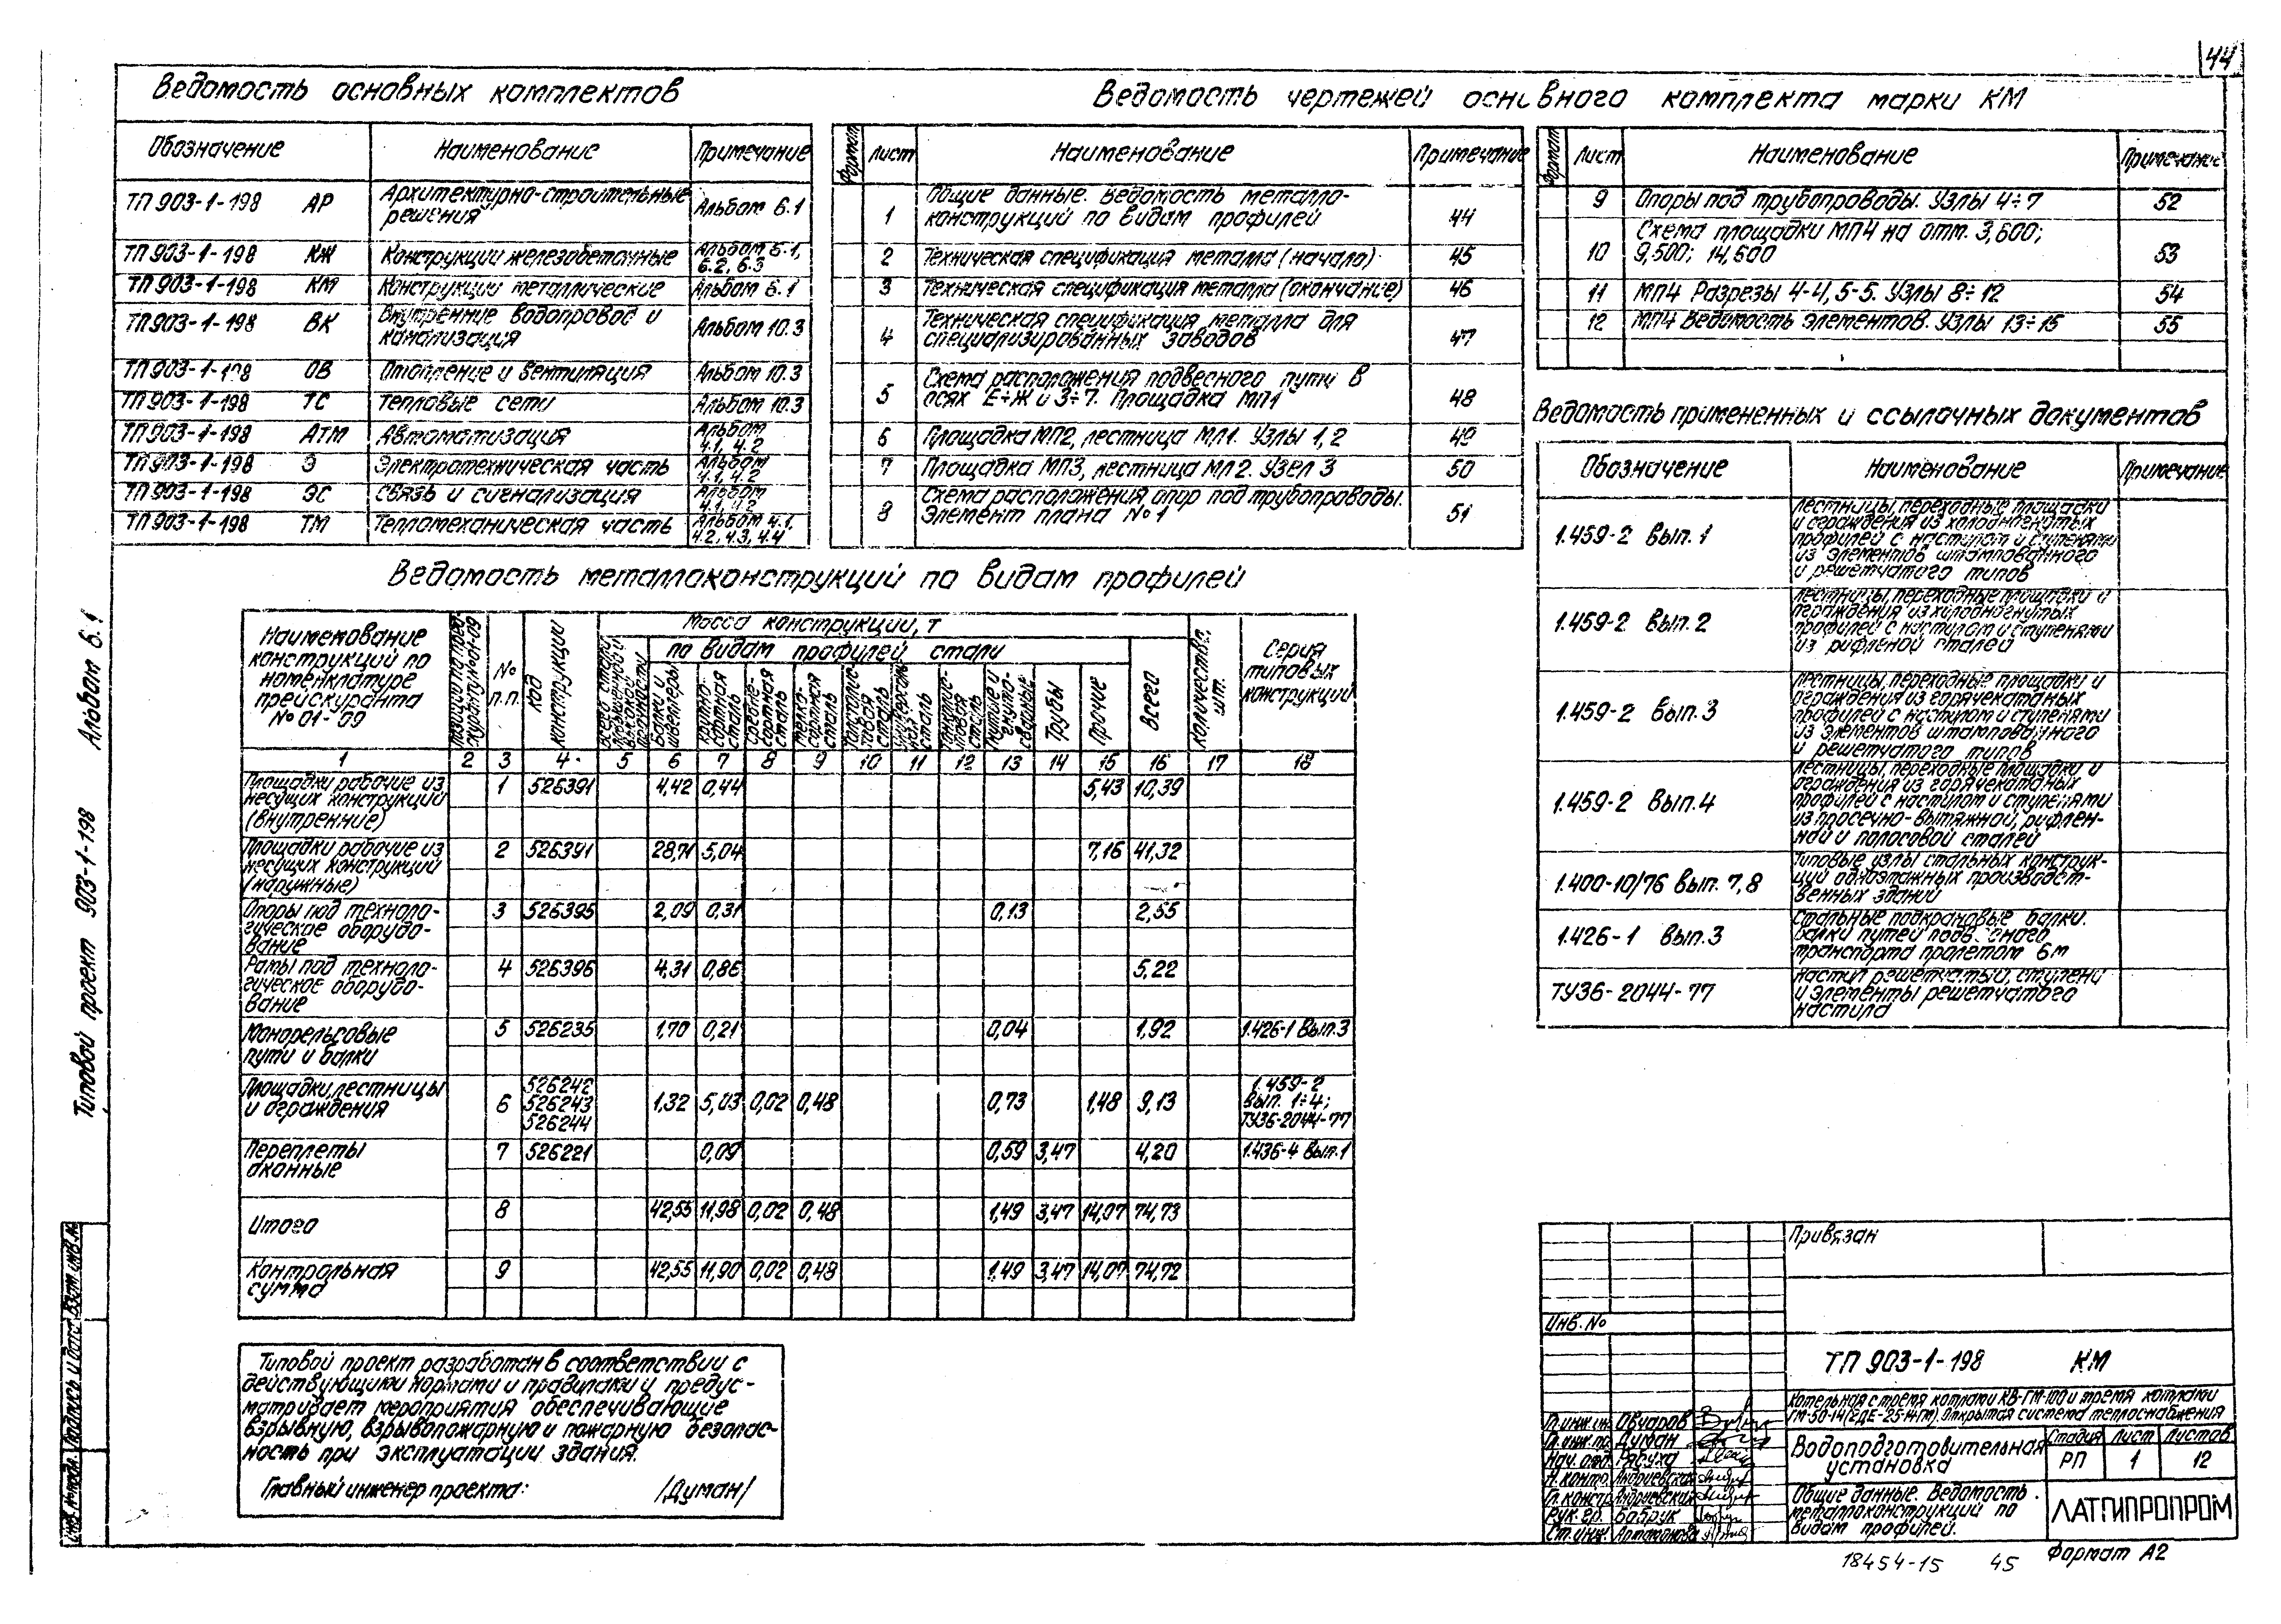 44
Ведомость основных комплектов
Обозначение Наименование Примечание
ТП 903-1-198 АР Архитектурно-строительные решения Альбом 6.1
ТП 903-1-198 КЖ Конструкции железобетонные Альбом 6.1, 6.2, 6.3
ТП 903-1-198 КМ Конструкции металлические Альбом 6.1
ТП 903-1-198 ВК Внутренние водопровод и канализация Альбом 10.3
ТП 903-1-198 ОВ Отопление и вентиляция Альбом 10.3
ТП 903-1-198 ТС Тепловые сети Альбом 10.3
ТП 903-1-198 АТМ Автоматизация Альбом 4.1, 4.2
ТП 903-1-198 Э Электротехническая часть Альбом 4.1, 4.2
ТП 903-1-198 ЭС Связь и сигнализация Альбом 4.1, 4.2
ТП 903-1-198 ТМ Тепломеханическая часть Альбом 4.1, 4.2, 4.3, 4.4
Ведомость чертежей основного комплекта марки КМ
Формат Лист Наименование Примечание
1 Общие данные. Ведомость металло-
конструкций по видам профилей 44
2 Техническая спецификация металла (начало) 45
3 Техническая спецификация металла (окончание) 46
4 Техническая спецификация металла для
специализированных заводов 47
5 Схема расположения подвесного пути в
осях Е÷Ж и 3÷7. Площадка МП1 48
6 Площадка МП2, лестница МЛ1. Узлы 1, 2 49
7 Площадка МП3, лестница МЛ2. Узел 3 50
8 Схема расположения опор под трубопроводы.
Элемент плана №1 51
Формат Лист Наименование Примечание
9 Опоры под трубопроводы. Узлы 4÷7 52
10 Схема площадки МП4 на отм. 3,600;
9,500; 14,600 53
11 МП4 Разрезы 4-4, 5-5. Узлы 8÷12 54
12 МП4 Ведомость элементов. Узлы 13÷15 55
Ведомость примененных и ссылочных документов
Обозначение Наименование Примечание
1.459-2 Вып. 1
Лестницы, переходные площадки
и ограждения из холодногнутых
профилей с настилом и ступенями
из элементов штампованного
и решетчатого типов
1.459-2 Вып. 2
Лестницы, переходные площадки и
ограждения из холодногнутых
профилей с настилом и ступенями
из рифленой сталей
1.459-2 Вып. 3
Лестницы, переходные площадки и
ограждения из горячекатаных
профилей с настилом и ступенями
из элементов штампованного
и решетчатого типов
1.459-2 Вып. 4
Лестницы, переходные площадки и
ограждения из горячекатаных
профилей с настилом и ступенями
из просечно-вытяжной, рифлен-
ной и полосовой сталей
1.400-10/76 Вып. 7, 8
Типовые узлы стальных конструк-
ций одноэтажных производст-
венных зданий
1.426-1 Вып. 3
Стальные подкрановые балки.
Балки путей подвесного
транспорта пролетом 6м
ТУ36-2044-77
Настил решетчатый, ступени
и элементы решетчатого
настила
Ведомость металлоконструкций по видам профилей
Наименование
конструкций по
номенклатуре
прейскуранта
№01-09
№ п.п.
Код конструкции
Масса конструкции, т
по видам профилей стали
Балки и швеллеры
Крупно-сортная сталь
Средне-сортная сталь
Мелко-сортная сталь
Трубы
Прочие
Всего
Количество, шт.
Серия типовых конструкций
1 2 3 4 5 6 7 8 9 10 11 12 13 14 15 16 17 18
Площадки рабочие из
несущих конструкций
(внутренние) 1 526391 4,42 0,44 5,43 10,39
Площадки рабочие из
несущих конструкций
(наружные) 2 526391 28,71 5,04 7,16 41,32
Опоры под техноло-
гическое оборудо-
вание 3 526395 2,09 0,31 0,13 2,55
Рамы под техноло-
гическое оборудо-
вание 4 526396 4,31 0,86 5,22
Монорельсовые
пути и балки 5 526235 1,70 0,21 0,04 1,92 1.426-1 Вып.3
Площадки, лестницы
и ограждения 6 526242 526243 526244 1,32 5,03 0,02 0,48 0,73 1,48 9,13 1.459-2 Вып. 1÷4; ТУ36-2044-77
Переплеты
оконные 7 526221 0,09 0,59 3,47 4,20 1.436-4 Вып.1
Итого 8 42,55 11,98 0,02 0,48 1,49 3,47 14,07 74,73
Контрольная
сумма 9 42,55 11,90 0,02 0,48 1,49 3,47 14,07 74,72
Типовой проект разработан в соответствии с
действующими нормами и правилами и предус-
матривает мероприятия обеспечивающие
взрывную, взрывопожарную и пожарную безопас-
ность при эксплуатации здания.
Главный инженер проекта: /Думан/
Типовой проект 903-1-198 Альбом 6.1
Инв. № подл. Подпись и дата Взам. инв. №
Привязан
Инв. №
ТП 903-1-198 КМ
Котельная с тремя котлами КВ-ГМ-100 и тремя котлами
ГМ-50-14 (ГДЕ-25-14ГМ). Открытая система теплоснабжения
Гл. инж. ин. Овчаров
Гл. инж. пр. Думан
Нач. отд. Рясуха
Н. контр. Андриевская
Гл. констр. Андриевская
Рук. гр. Бабрук
Ст. инж. Артамонова
Водоподготовительная
установка
Стадия Лист Листов
РП 1 12
Общие данные. Ведомость
металлоконструкций по
видам профилей.
ЛАТГИПРОПРОМ
18454-15 45 Формат А2